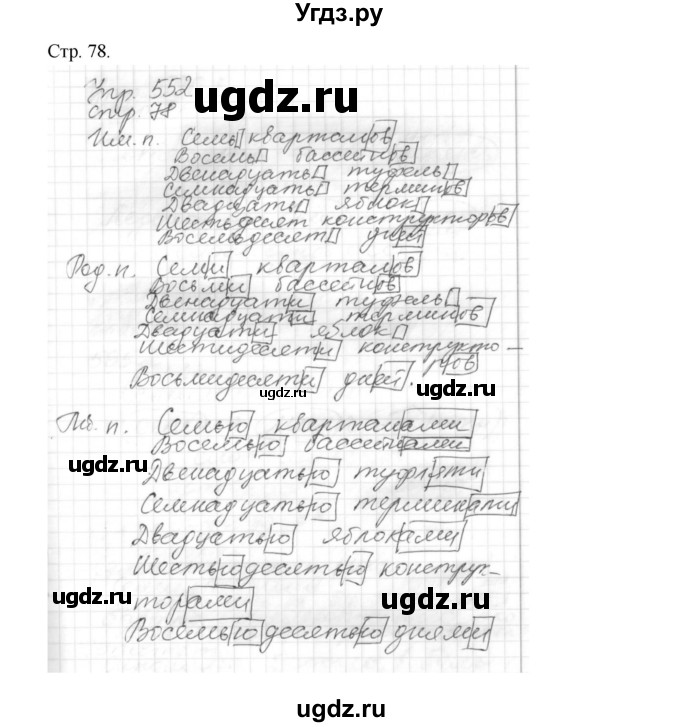 Угдз.ру
Стр. 78.
Упр. 552
стр. 78
ugdz.ru
Им. п. Семь кварталов
Восемь бассейнов
Двенадцать туфель
Семнадцать терминов
Двадцать яблок
Шестьдесят конструкторов
Восемьдесят дней
Род. п. Семи кварталов
Восьми бассейнов
Двенадцати туфель
Семнадцати терминов
Двадцати яблок
Шестидесяти конструкто-
ров
Восьмидесяти дней.
ugdz.ru
ugdz.ru
Тв. п. Семью кварталами
Восемью бассейнами
ugdz.ru
Двенадцатью туфлями
Семнадцатью терминами
Двадцатью яблоками
Шестьюдесятью конструк-
торами
ugdz.ru
ugdz.ru
Восемьюдесятью днями
ugdz.ru
ugdz.ru